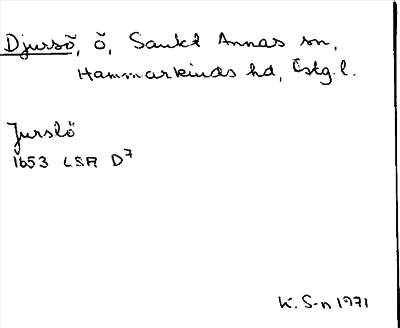 Djursö, ö, Sankt Annas sn,
Hammarkinds hd, Östg.l.
Jurslö
1653 LSA D7
K. S-n 1971